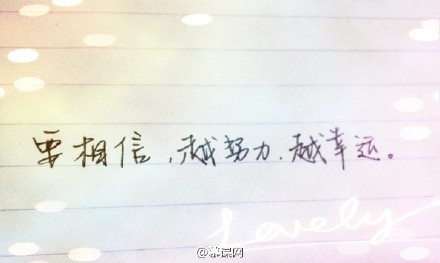 要相信,越努力、越幸运。
Lovely
@慕课网